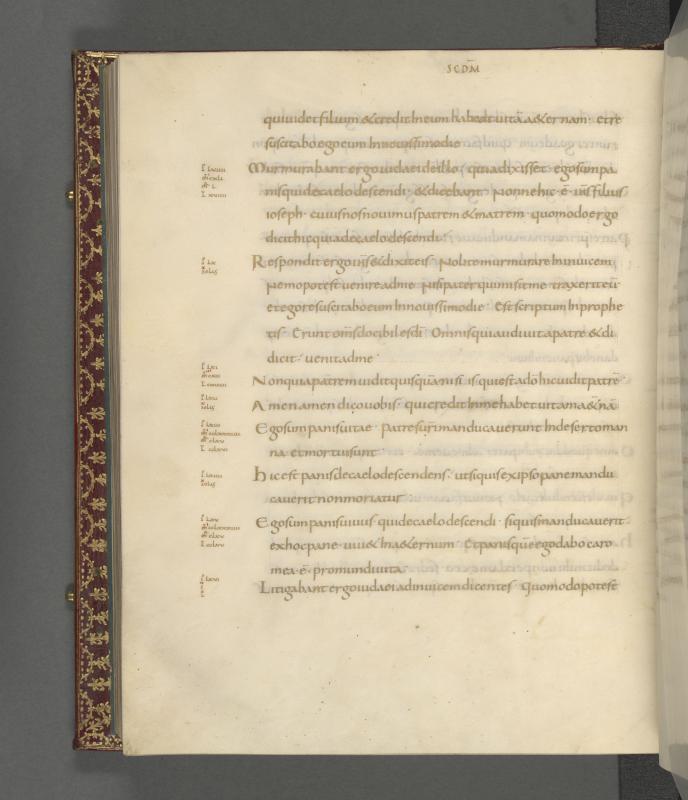 SCDM̄
quiuidet filium & credit in eum habeat uitā aeternam · et re
suscitabo ego eum In nouissimo die
Murmurabant ergo iudaei de illo · quia dixisset · ego sum pa
nis qui de caelo descendi · & dicebant · Nonne hic · ē · ihs filius
ioseph · cuius nos nouimus patrem & matrem · quomodo ergo
dicit hic quia de caelo descendi ·
Respondit ergo ihs & dixit eis · Nolite murmurare In inuicem ·
Nemo potest uenire ad me · Nisi pater qui misit me · traxerit eū ·
et ego resuscitabo eum In nouissimo die · Est scriptum In prophe
tis · Erunt oms docibiles dī · Omnis qui audiuit a patre & di
dicit · uenit ad me ·
Non quia patrem uidit quisquā nisi is qui est a dō hic uidit patrē ·
Amen amen dico uobis · qui credit In me habet uitam aetnā
Ego sum panis uitae · patres urī manducauerunt In deserto man
na et mortui sunt ·
hic est panis de caelo descendens · ut si quis ex ipso pane mandu
cauerit non moriatur
Ego sum panis uiuus · qui de caelo descendi · si quis manducauerit ·
ex hoc pane · uiu& In aeternum · Et panis quē ego dabo caro
mea · ē · pro mundi uita
Litigabant ergo iudaei ad inuicem dicentes · Quomodo potest